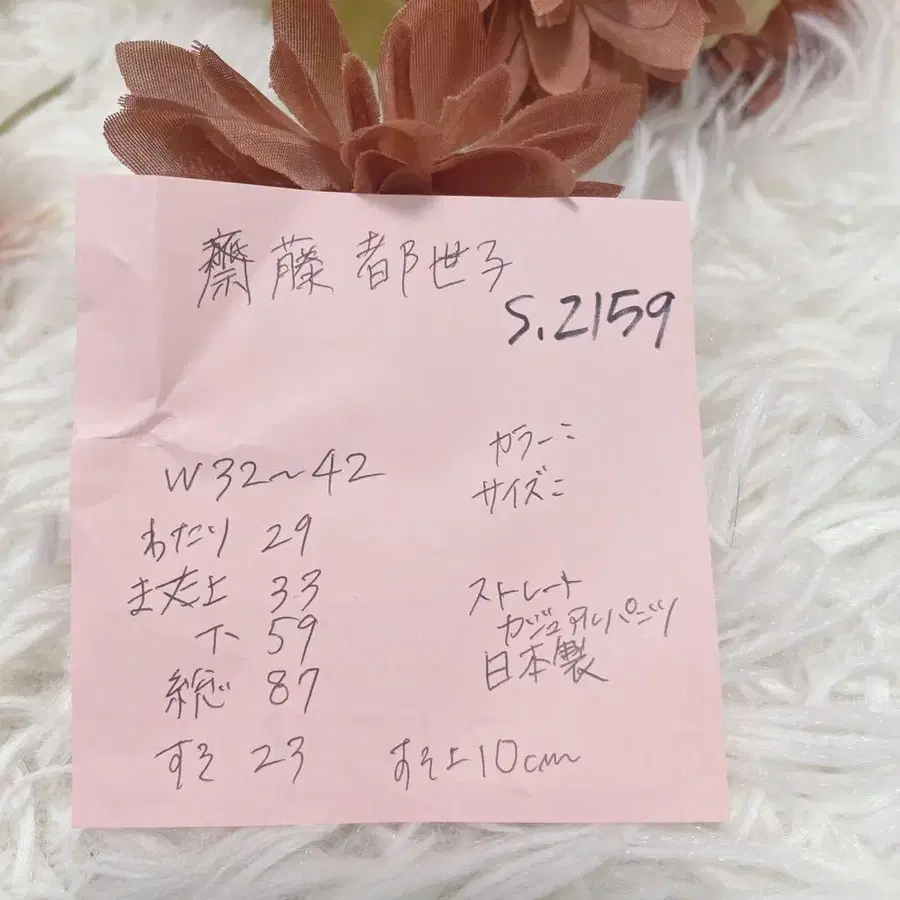 齋藤都世子
S.2159
W32~42
わたり 29
ま丈上 33
下 59
総 87
すそ 23
すそ上10cm
カラー:
サイズ:
ストレート
カジュアルパンツ
日本製